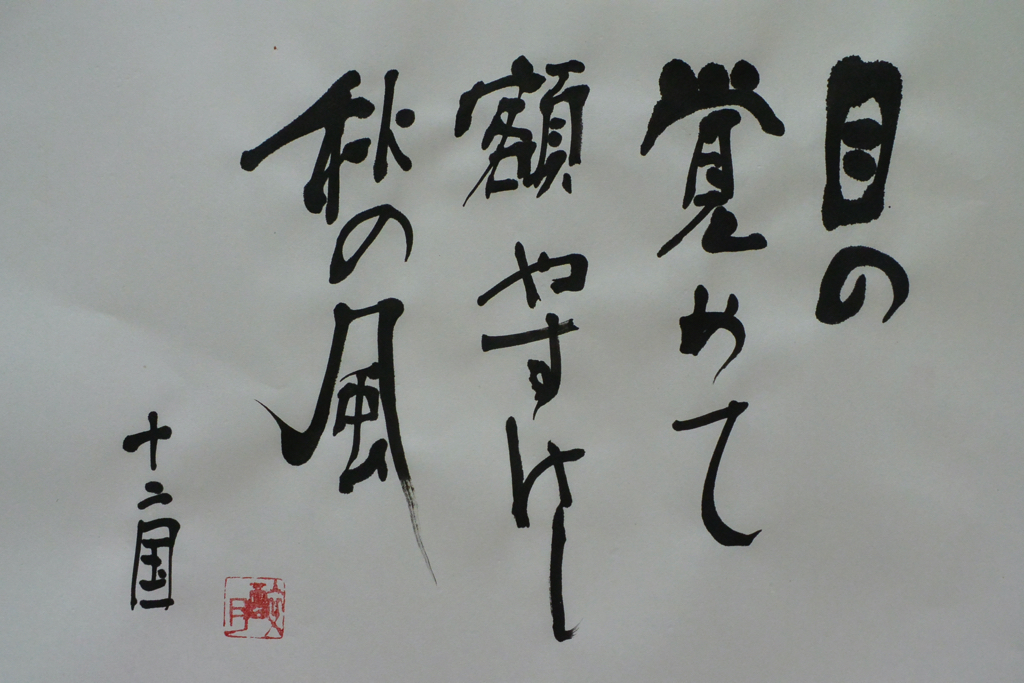 目の
覚めて
額やすけし
秋の風
十二国